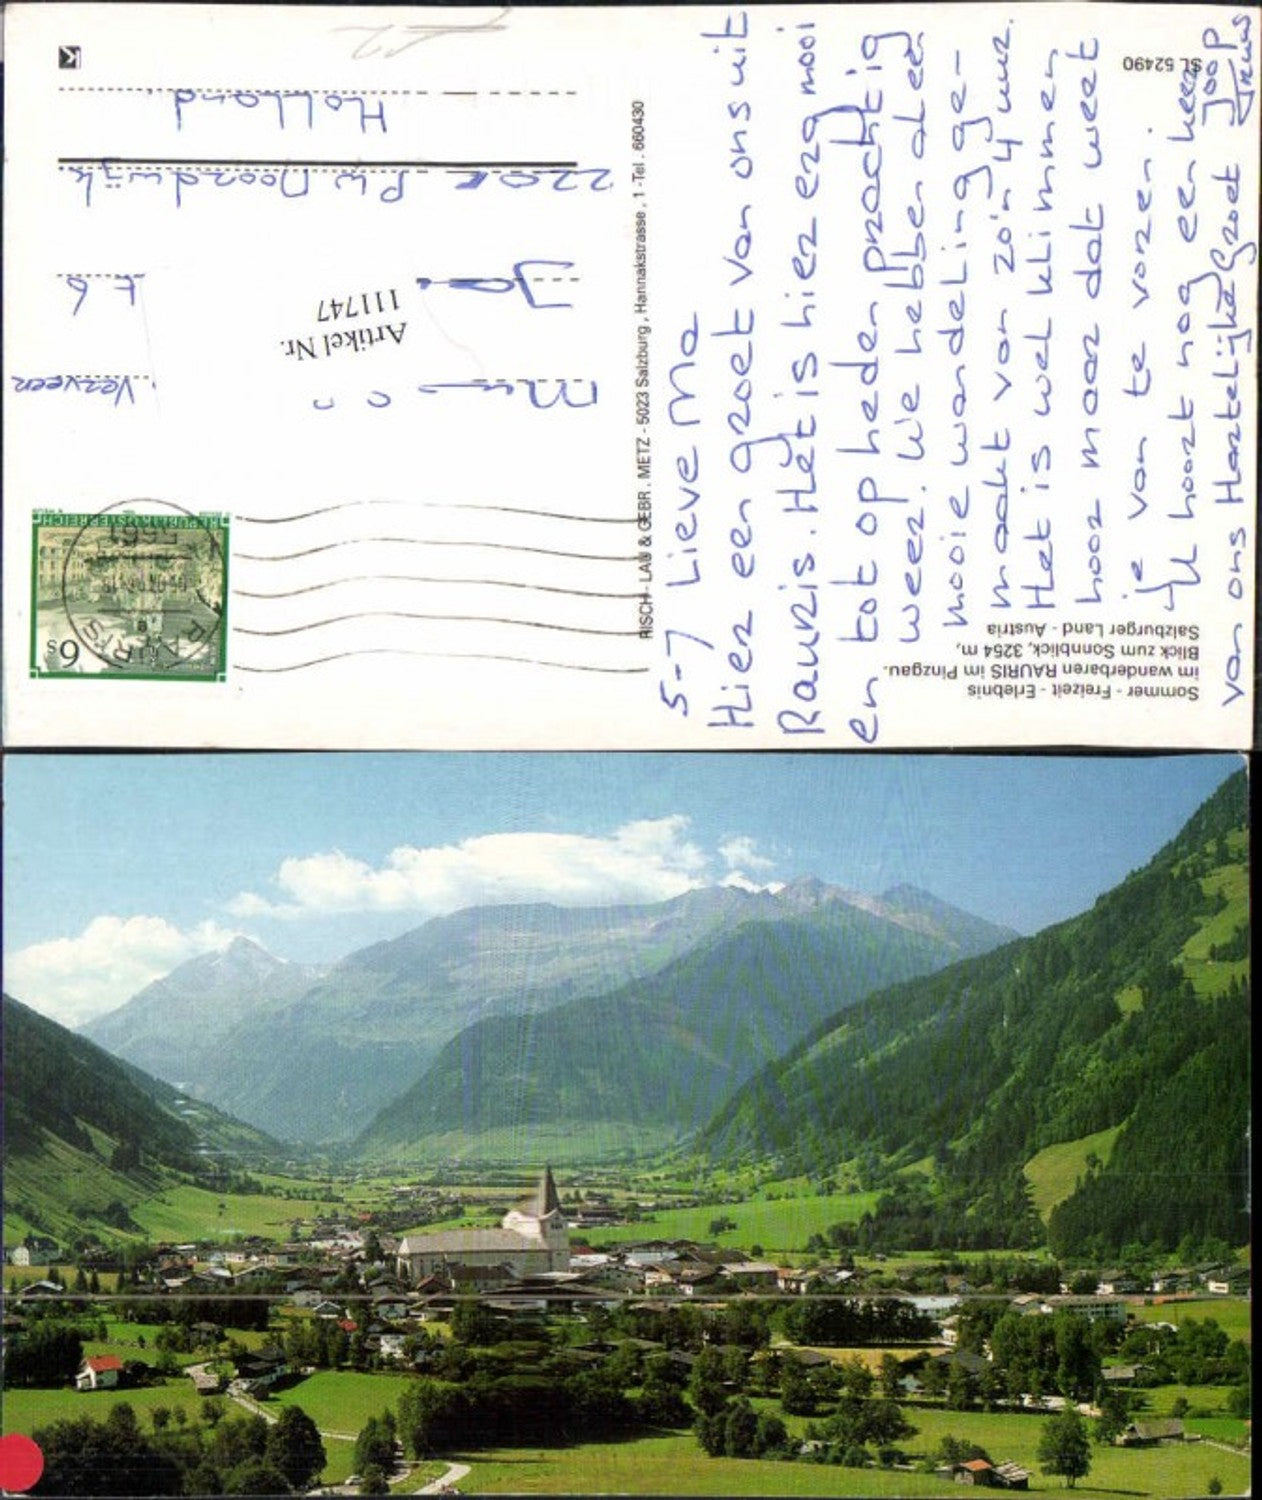 5-7 Lieve Ma
Hier een groet van ons uit
Rauris. Het is hier erg mooi
en tot op heden prachtig
weer. We hebben al een
mooie wandeling ge-
maakt van zo'n 4 uur.
Het is wel klimmen
hoor maar dat weet
je van te voren.
U hoort nog een keer
van ons Hartelijke Groet Joop
Truus
Sommer - Freizeit - Erlebnis
im wanderbaren RAURIS im Pinzgau.
Blick zum Sonnblick, 3254 m,
Salzburger Land - Austria
SL 52490
RISCH-LAU & GEBR. METZ - 5023 Salzburg, Hannakstrasse, 1 - Tel. 660430
REPUBLIK ÖSTERREICH
6s
5661
RAURIS
Verveer
Artikel Nr.
111747
Noordwijk
Holland